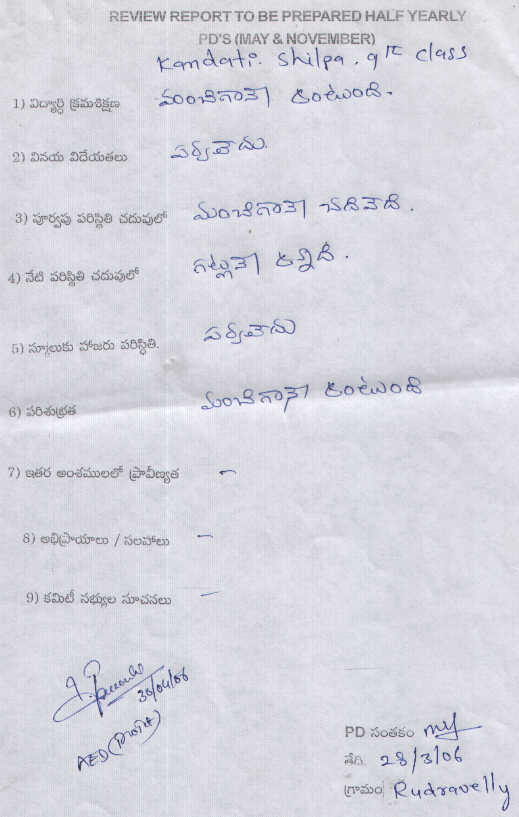 REVIEW REPORT TO BE PREPARED HALF YEARLY
PD'S (MAY & NOVEMBER)
Kandati. Shilpa. 9th class
1) విద్యార్థి క్రమశిక్షణ మంచిగానే ఉంటుంది.
2) వినయ విదేయతలు పర్వలేదు.
3) పూర్వపు పరిస్థితి చదువులో మంచిగానే చదివేది.
4) నేటి పరిస్థితి చదువులో గట్లనే ఉన్నది.
5) స్కూలుకు హాజరు పరిస్థితి. పర్వలేదు
6) పరిశుభ్రత మంచిగానే ఉంటుంది
7) ఇతర అంశములలో ప్రావీణ్యత -
8) అభిప్రాయాలు / సలహాలు -
9) కమిటీ సభ్యుల సూచనలు -
30/04/06
AED
PD సంతకం
తేది. 28/3/06
గ్రామం Rudravelly